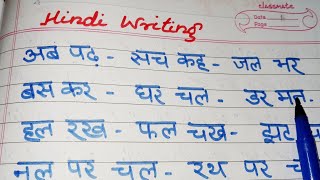 Hindi Writing
classmate
Date
Page
अब पढ़ - सच कह - जल भर
बस कर - घर चल - डर मत.
हल रख - फल चख - झट
नल पर चल - रथ पर